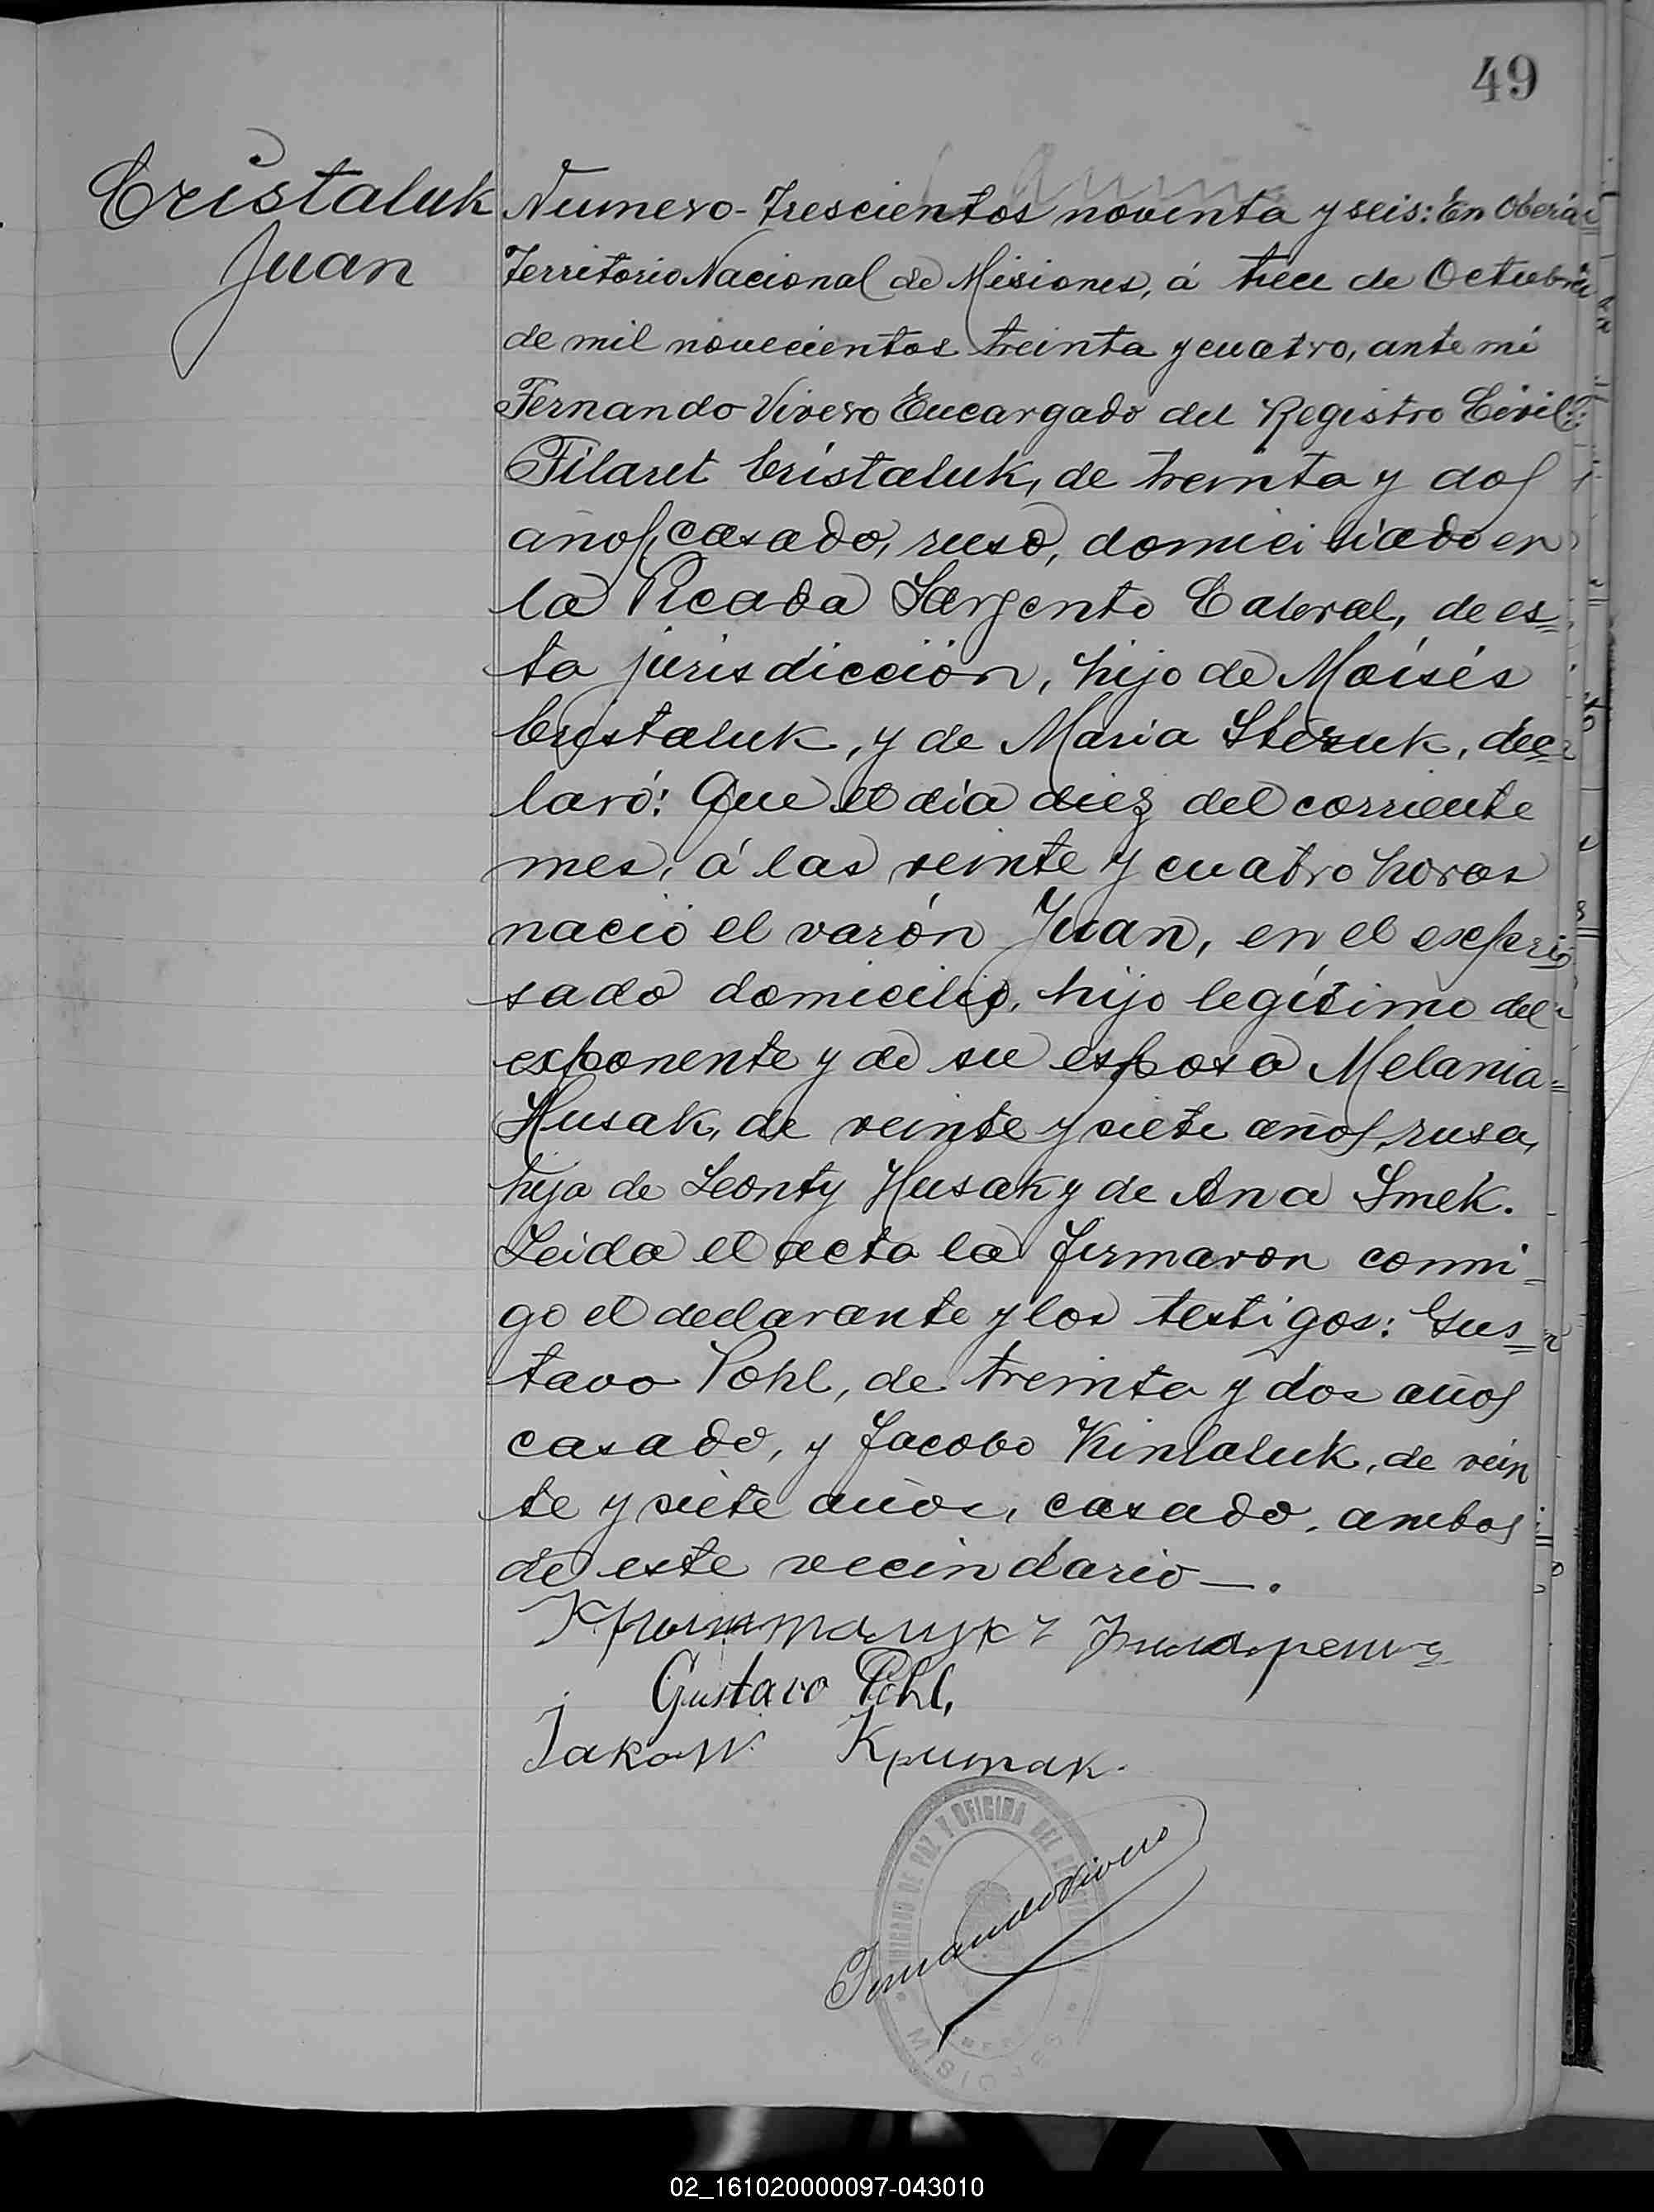 49
Cristaluk
Juan
Numero-Trescientos noventa y seis: En Oberá
Territorio Nacional de Misiones, á trece de Octubre
de mil novecientos treinta y cuatro, ante mí
Fernando Vivero Encargado del Registro Civil:
Filaret Cristaluk, de treinta y dos
años, casado, ruso, domiciliado en
la Picada Sargento Cabral, de es=
ta jurisdicción, hijo de Moisés
Cristaluk, y de Maria Stezuk, dec=
laró: Que el día diez del corriente
mes, á las veinte y cuatro horas
nació el varón Juan, en el expre
sado domicilio, hijo legítimo del
exponente y de su esposa Melania=
Husak, de veinte y siete años, rusa,
hija de Leonty Husak y de Ana Smek.
Leida el acta la firmaron conmi=
go el declarante y los testigos: Gus=
tavo Pohl, de treinta y dos años
casado, y Jacobo Kintaluk, de vein
te y siete años, casado, ambos
de este vecindario—.
Gustavo Pohl,
Jakow
Fernando Vivero
JUZGADO DE PAZ Y OFICINA DEL
MISIONES
02_161020000097-043010